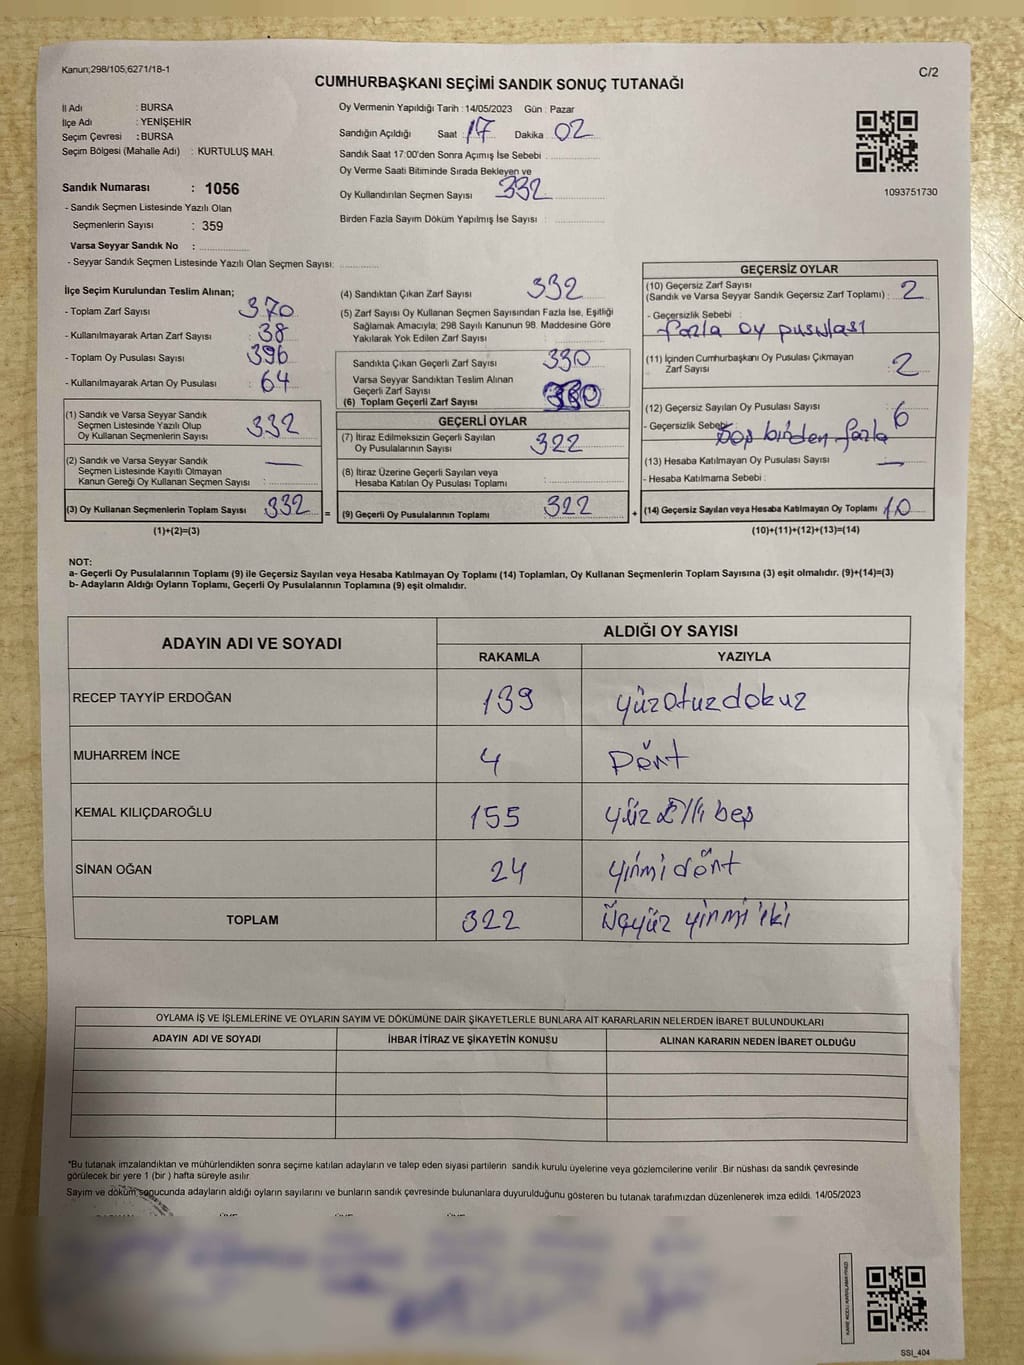 Kanun;298/105,6271/18-1
C/2
CUMHURBAŞKANI SEÇİMİ SANDIK SONUÇ TUTANAĞI
İl Adı : BURSA
İlçe Adı : YENİŞEHİR
Seçim Çevresi : BURSA
Seçim Bölgesi (Mahalle Adı) : KURTULUŞ MAH.
Sandık Numarası : 1056
- Sandık Seçmen Listesinde Yazılı Olan
Seçmenlerin Sayısı : 359
Varsa Seyyar Sandık No :
- Seyyar Sandık Seçmen Listesinde Yazılı Olan Seçmen Sayısı:
Oy Vermenin Yapıldığı Tarih : 14/05/2023 Gün : Pazar
Sandığın Açıldığı Saat 17 Dakika 02
Sandık Saat 17:00'den Sonra Açımış İse Sebebi
Oy Verme Saati Bitiminde Sırada Bekleyen ve
Oy Kullandırılan Seçmen Sayısı 332
Birden Fazla Sayım Döküm Yapılmış İse Sayısı :
1093751730
İlçe Seçim Kurulundan Teslim Alınan;
- Toplam Zarf Sayısı : 370
- Kullanılmayarak Artan Zarf Sayısı : 38
- Toplam Oy Pusulası Sayısı : 396
- Kullanılmayarak Artan Oy Pusulası : 64
(1) Sandık ve Varsa Seyyar Sandık
Seçmen Listesinde Yazılı Olup
Oy Kullanan Seçmenlerin Sayısı : 332
(2) Sandık ve Varsa Seyyar Sandık
Seçmen Listesinde Kayıtlı Olmayan
Kanun Gereği Oy Kullanan Seçmen Sayısı : —
(3) Oy Kullanan Seçmenlerin Toplam Sayısı 332
(1)+(2)=(3)
=
(4) Sandıktan Çıkan Zarf Sayısı 332
(5) Zarf Sayısı Oy Kullanan Seçmen Sayısından Fazla İse, Eşitliği
Sağlamak Amacıyla; 298 Sayılı Kanunun 98. Maddesine Göre
Yakılarak Yok Edilen Zarf Sayısı
Sandıkta Çıkan Geçerli Zarf Sayısı 330
Varsa Seyyar Sandıktan Teslim Alınan
Geçerli Zarf Sayısı
(6) Toplam Geçerli Zarf Sayısı 330
GEÇERLİ OYLAR
(7) İtiraz Edilmeksizin Geçerli Sayılan
Oy Pusulasının Sayısı 322
(8) İtiraz Üzerine Geçerli Sayılan veya
Hesaba Katılan Oy Pusulası Toplamı
(9) Geçerli Oy Pusulalarının Toplamı 322
+
GEÇERSİZ OYLAR
(10) Geçersiz Zarf Sayısı
(Sandık ve Varsa Seyyar Sandık Geçersiz Zarf Toplamı) : 2
- Geçersizlik Sebebi :
fazla oy pusulası
(11) İçinden Cumhurbaşkanı Oy Pusulası Çıkmayan
Zarf Sayısı : 2
(12) Geçersiz Sayılan Oy Pusulası Sayısı : 6
- Geçersizlik Sebebi: birden fazla
(13) Hesaba Katılmayan Oy Pusulası Sayısı : —
- Hesaba Katılmama Sebebi :
(14) Geçersiz Sayılan veya Hesaba Katılmayan Oy Toplamı 10
(10)+(11)+(12)+(13)=(14)
NOT:
a- Geçerli Oy Pusulalarının Toplamı (9) ile Geçersiz Sayılan veya Hesaba Katılmayan Oy Toplamı (14) Toplamları, Oy Kullanan Seçmenlerin Toplam Sayısına (3) eşit olmalıdır. (9)+(14)=(3)
b- Adayların Aldığı Oyların Toplamı, Geçerli Oy Pusulalarının Toplamına (9) eşit olmalıdır.
ADAYIN ADI VE SOYADI
ALDIĞI OY SAYISI
RAKAMLA YAZIYLA
RECEP TAYYİP ERDOĞAN 139 yüzotuzdokuz
MUHARREM İNCE 4 Dört
KEMAL KILIÇDAROĞLU 155 yüz Elli beş
SİNAN OĞAN 24 yirmi dört
TOPLAM 322 Üçyüz yirmi iki
OYLAMA İŞ VE İŞLEMLERİNE VE OYLARIN SAYIM VE DÖKÜMÜNE DAİR ŞİKAYETLERLE BUNLARA AİT KARARLARIN NELERDEN İBARET BULUNDUKLARI
ADAYIN ADI VE SOYADI İHBAR İTİRAZ VE ŞİKAYETİN KONUSU ALINAN KARARIN NEDEN İBARET OLDUĞU
*Bu tutanak imzalandıktan ve mühürlendikten sonra seçime katılan adayların ve talep eden siyasi partilerin sandık kurulu üyelerine veya gözlemcilerine verilir .Bir nüshası da sandık çevresinde
görülecek bir yere 1 (bir ) hafta süreyle asılır.
Sayım ve döküm sonucunda adayların aldığı oyların sayılarını ve bunların sandık çevresinde bulunanlara duyurulduğunu gösteren bu tutanak tarafımızdan düzenlenerek imza edildi. 14/05/2023
SSI_404